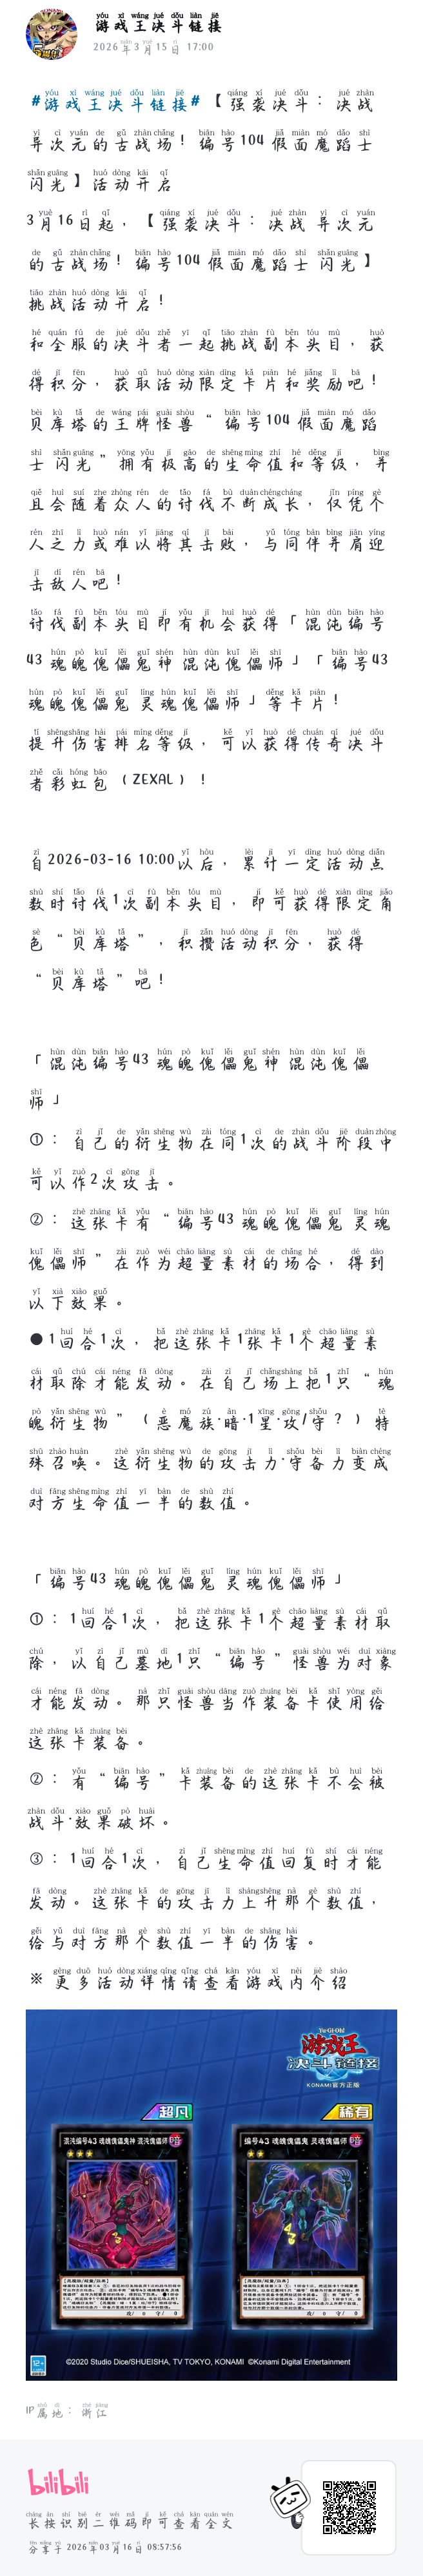 游戏王决斗链接
2026年3月15日 17:00
#游戏王决斗链接#【强袭决斗：决战
异次元的古战场！编号104 假面魔蹈士
闪光】活动开启
3月16日起，【强袭决斗：决战 异次元
的古战场！编号104 假面魔蹈士 闪光】
挑战活动开启！
和全服的决斗者一起挑战副本头目，获
得积分，获取活动限定卡片和奖励吧！
贝库塔的王牌怪兽“编号104 假面魔蹈
士 闪光”拥有极高的生命值和等级，并
且会随着众人的讨伐不断成长，仅凭个
人之力或难以将其击败，与同伴并肩迎
击敌人吧！
讨伐副本头目即有机会获得「混沌编号
43 魂魄傀儡鬼神 混沌傀儡师」「编号43
魂魄傀儡鬼 灵魂傀儡师」等卡片！
提升伤害排名等级，可以获得传奇决斗
者彩虹包（ZEXAL）！
自2026-03-16 10:00以后，累计一定活动点
数时讨伐1次副本头目，即可获得限定角
色“贝库塔”，积攒活动积分，获得
“贝库塔”吧！
「混沌编号43 魂魄傀儡鬼神 混沌傀儡
师」
①：自己的衍生物在同1次的战斗阶段中
可以作2次攻击。
②：这张卡有“编号43 魂魄傀儡鬼 灵魂
傀儡师”在作为超量素材的场合，得到
以下效果。
●1回合1次，把这张卡1张卡1个超量素
材取除才能发动。在自己场上把1只“魂
魄衍生物”（恶魔族·暗·1星·攻/守？）特
殊召唤。这衍生物的攻击力·守备力变成
对方生命值一半的数值。
「编号43 魂魄傀儡鬼 灵魂傀儡师」
①：1回合1次，把这张卡1个超量素材取
除，以自己墓地1只“编号”怪兽为对象
才能发动。那只怪兽当作装备卡使用给
这张卡装备。
②：有“编号”卡装备的这张卡不会被
战斗·效果破坏。
③：1回合1次，自己生命值回复时才能
发动。这张卡的攻击力上升那个数值，
给与对方那个数值一半的伤害。
※ 更多活动详情请查看游戏内介绍
Yu-Gi-Oh!
游戏王
决斗链接
KONAMI官方正版
超凡
稀有
混沌编号43 魂魄傀儡鬼神 混沌傀儡师
编号43 魂魄傀儡鬼 灵魂傀儡师
12+
©2020 Studio Dice/SHUEISHA, TV TOKYO, KONAMI ©Konami Digital Entertainment
IP属地：浙江
bilibili
长按识别二维码即可查看全文
分享于2026年03月16日 08:57:56